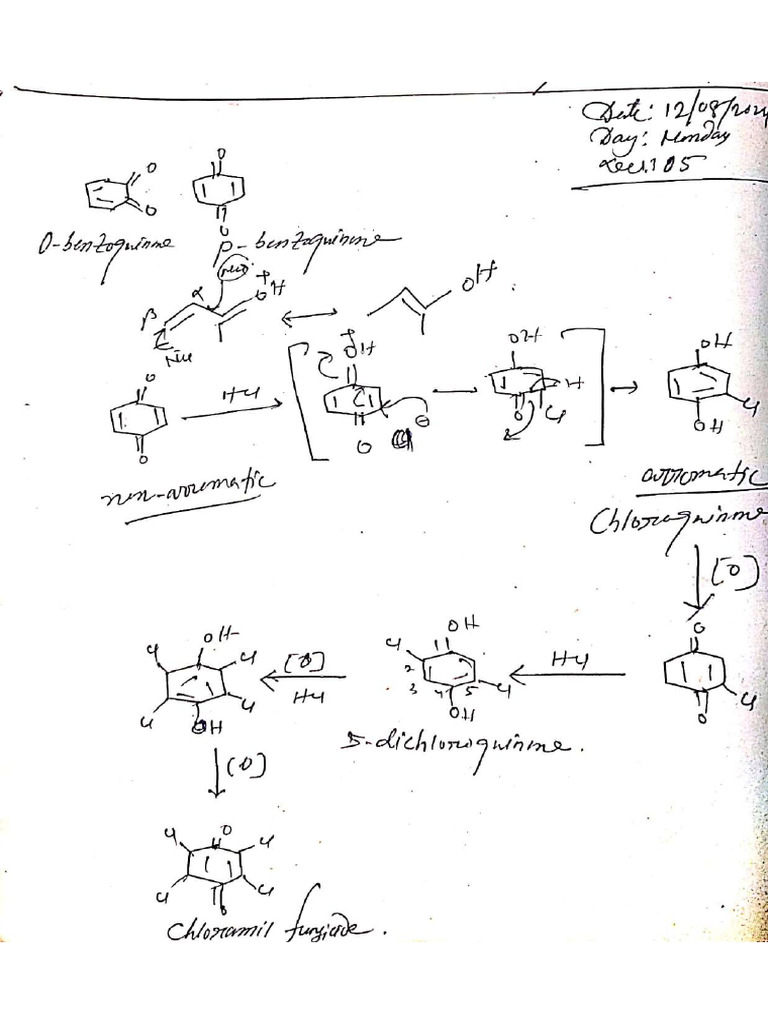 Date: 12/08/2024
Day: Monday
Lec: 105
O
O
O
O
O-benzoquinone
p-benzoquinone
Nu
+
OH
α
β
Nu
OH
O
O
HCl
+
OH
O
Cl
OH
H
O
Cl
OH
Cl
OH
non-arromatic
arromatic
Chloroquinone
[O]
O
Cl
O
HCl
OH
Cl
2
3
4
5
Cl
OH
5-dichloroquinone.
[O]
HCl
OH
Cl
Cl
Cl
Cl
OH
[O]
O
Cl
Cl
Cl
Cl
O
Chloramil fungicide.